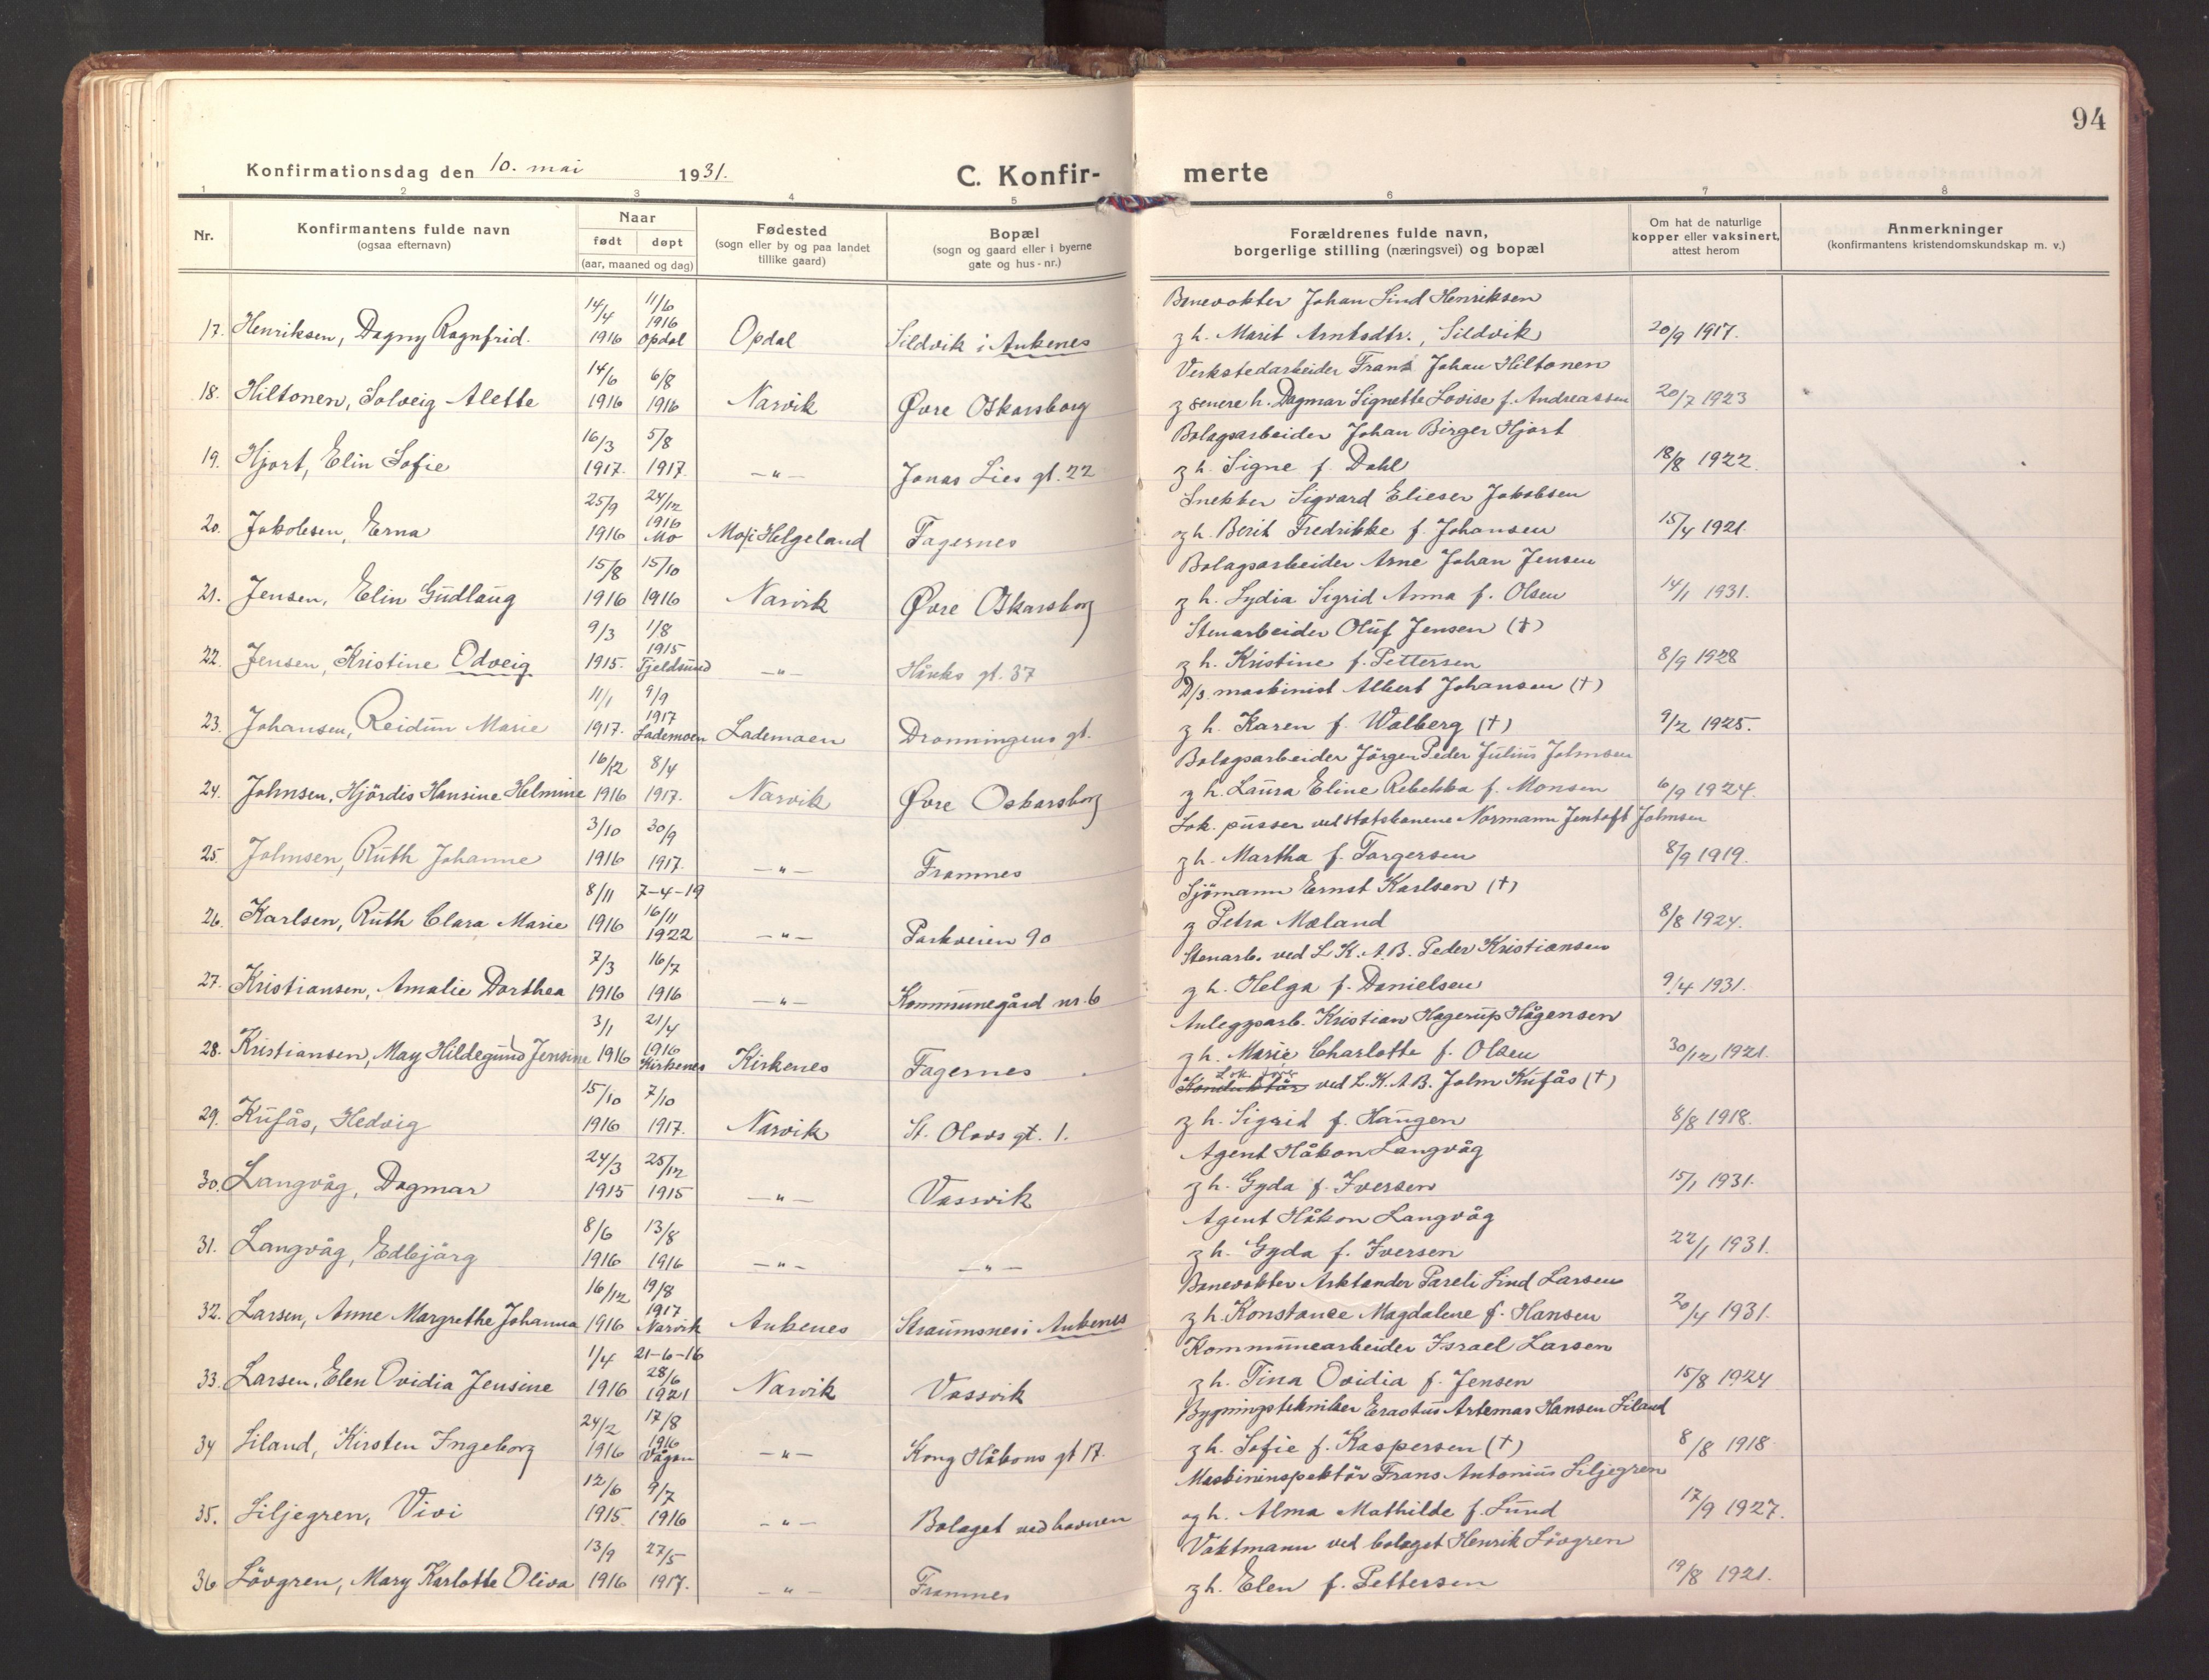 94
Konfirmationsdag den 10. mai 1931.
C. Konfir- merte
1 2 3 4 5 6 7 8
Nr.
Konfirmantens fulde navn
(ogsaa efternavn)
Naar
født døpt
(aar, maaned og dag)
Fødested
(sogn eller by og paa landet
tillike gaard)
Bopæl
(sogn og gaard eller i byerne
gate og hus-nr.)
Forældrenes fulde navn,
borgerlige stilling (næringsvei) og bopæl
Om hat de naturlige
kopper eller vaksinert,
attest herom
Anmerkninger
(konfirmantens kristendomskundskap m. v.)
14/4 11/6 Banevokter Johan Lind Henriksen
17. Henriksen, Dagny Ragnfrid. 1916 1916 Opdal Opdal Sildvik i Ankenes g h. Marit Arntsdtr., Sildvik 20/9 1917.
14/6 6/8 Verkstedarbeider Frans Johan Hiltonen
18. Hiltonen, Solveig Alette 1916 1916 Narvik Øvre Oskarsborg g senere h. Dagmar Signette Lovise f. Andreassen 20/7 1923
16/3 5/8 Bolagsarbeider Johan Birger Hjort
19. Hjort, Elin Sofie 1917. 1917. -"- Jonas Lies gt. 22 g h. Signe f. Dahl 18/8 1922.
25/9 24/12 Snekker Sigvard Elieser Jakobsen
20. Jakobsen, Erna 1916 1916 Mo Mo i Helgeland Fagernes og h. Berit Fredrikke f. Johansen 15/4 1921.
15/8 15/10 Bolagsarbeider Arne Johan Jensen
21. Jensen, Elin Gudlaug 1916 1916 Narvik Øvre Oskarsborg g h. Lydia Sigrid Anna f. Olsen 14/1 1931.
9/3 1/8 Stenarbeider Oluf Jensen (†)
22. Jensen, Kristine Odveig 1915. 1915 Tjeldsund -"- Håreks gt. 37 g h. Kristine f. Pettersen 8/9 1928
11/1 9/9 D/s. maskinist Albert Johansen (†)
23. Johansen, Reidun Marie 1917. 1917 Lademoen Lademoen Dronningens gt. g h. Karen f. Walberg (†) 9/2 1925.
16/12 8/4 Bolagsarbeider Jörgen Peder Julius Johnsen
24. Johnsen, Hjördis Hansine Helmine 1916 1917. Narvik Øvre Oskarsborg g h. Laura Eline Rebekka f. Monsen 6/9 1924.
3/10 30/9 Lok. pusser ved statsbanene Normann Jentoft Johnsen
25. Johnsen, Ruth Johanne 1916 1917. -"- Framnes g h. Martha f. Torgersen 8/9 1919.
8/11 7-4-19 Sjömann Ernst Karlsen (†)
26. Karlsen, Ruth Clara Marie 1916 16/11 1922 -"- Parkveien 90 g Petra Mæland 8/8 1924.
7/3 16/7 Stenarb. ved L.K.A.B. Peder Kristiansen
27. Kristiansen, Amalie Dorthea 1916 1916 -"- Kommunegård nr. 6 g h. Helga f. Danielsen 9/4 1931.
3/1 21/4 Anleggsarb. Kristian Hagerup Hågensen
28. Kristiansen, May Hildegund Jensine 1916 1916 Kirkenes Kirkenes Fagernes g h. Marie Charlotte f. Olsen 30/12 1921.
15/10 7/10 Konduktör ved L.K.A.B. John Kufås (†)
29. Kufås, Hedvig 1916 1917. Narvik St. Olavs gt. 1. g h. Sigrid f. Haugen 8/8 1918.
24/3 25/12 Agent Håkon Langvåg
30. Langvåg, Dagmar 1915 1915 -"- Vassvik g h. Gyda f. Iversen 15/1 1931.
8/6 13/8 Agent Håkon Langvåg
31. Langvåg, Edbjörg 1916 1916 -"- -"- g h. Gyda f. Iversen 22/1 1931.
16/12 19/8 Banevokter Arktander Pareli Lind Larsen
32. Larsen, Anne Margrethe Johanna 1916 1917 Narvik Ankenes Straumsnes i Ankenes g h. Konstance Magdalene f. Hansen 20/4 1931.
1/4 21-6-16 Kommunearbeider Israel Larsen
33. Larsen, Elen Ovidia Jensine 1916 28/6 1921 Narvik Vassvik g h. Tina Ovidia f. Jensen 15/8 1924
24/2 17/8 Bygningstekniker Erastus Artemas Hansen Liland
34 Liland, Kirsten Ingeborg 1916 1916 Vågan -"- Kong Håkons gt 17. g h. Sofie f. Kaspersen (†) 8/8 1918
12/6 9/7 Maskininspektör Frans Antonius Liljegren
35. Liljegren, Vivi 1915. 1916 -"- Bolaget ved havnen og h. Alma Mathilde f. Lund 17/9 1927.
13/9 27/5 Vaktmann ved bolaget Henrik Lövgren
36 Lövgren, Mary Karlotte Oliva 1916 1917. -"- Framnes g h. Elen f. Pettersen 19/8 1921.